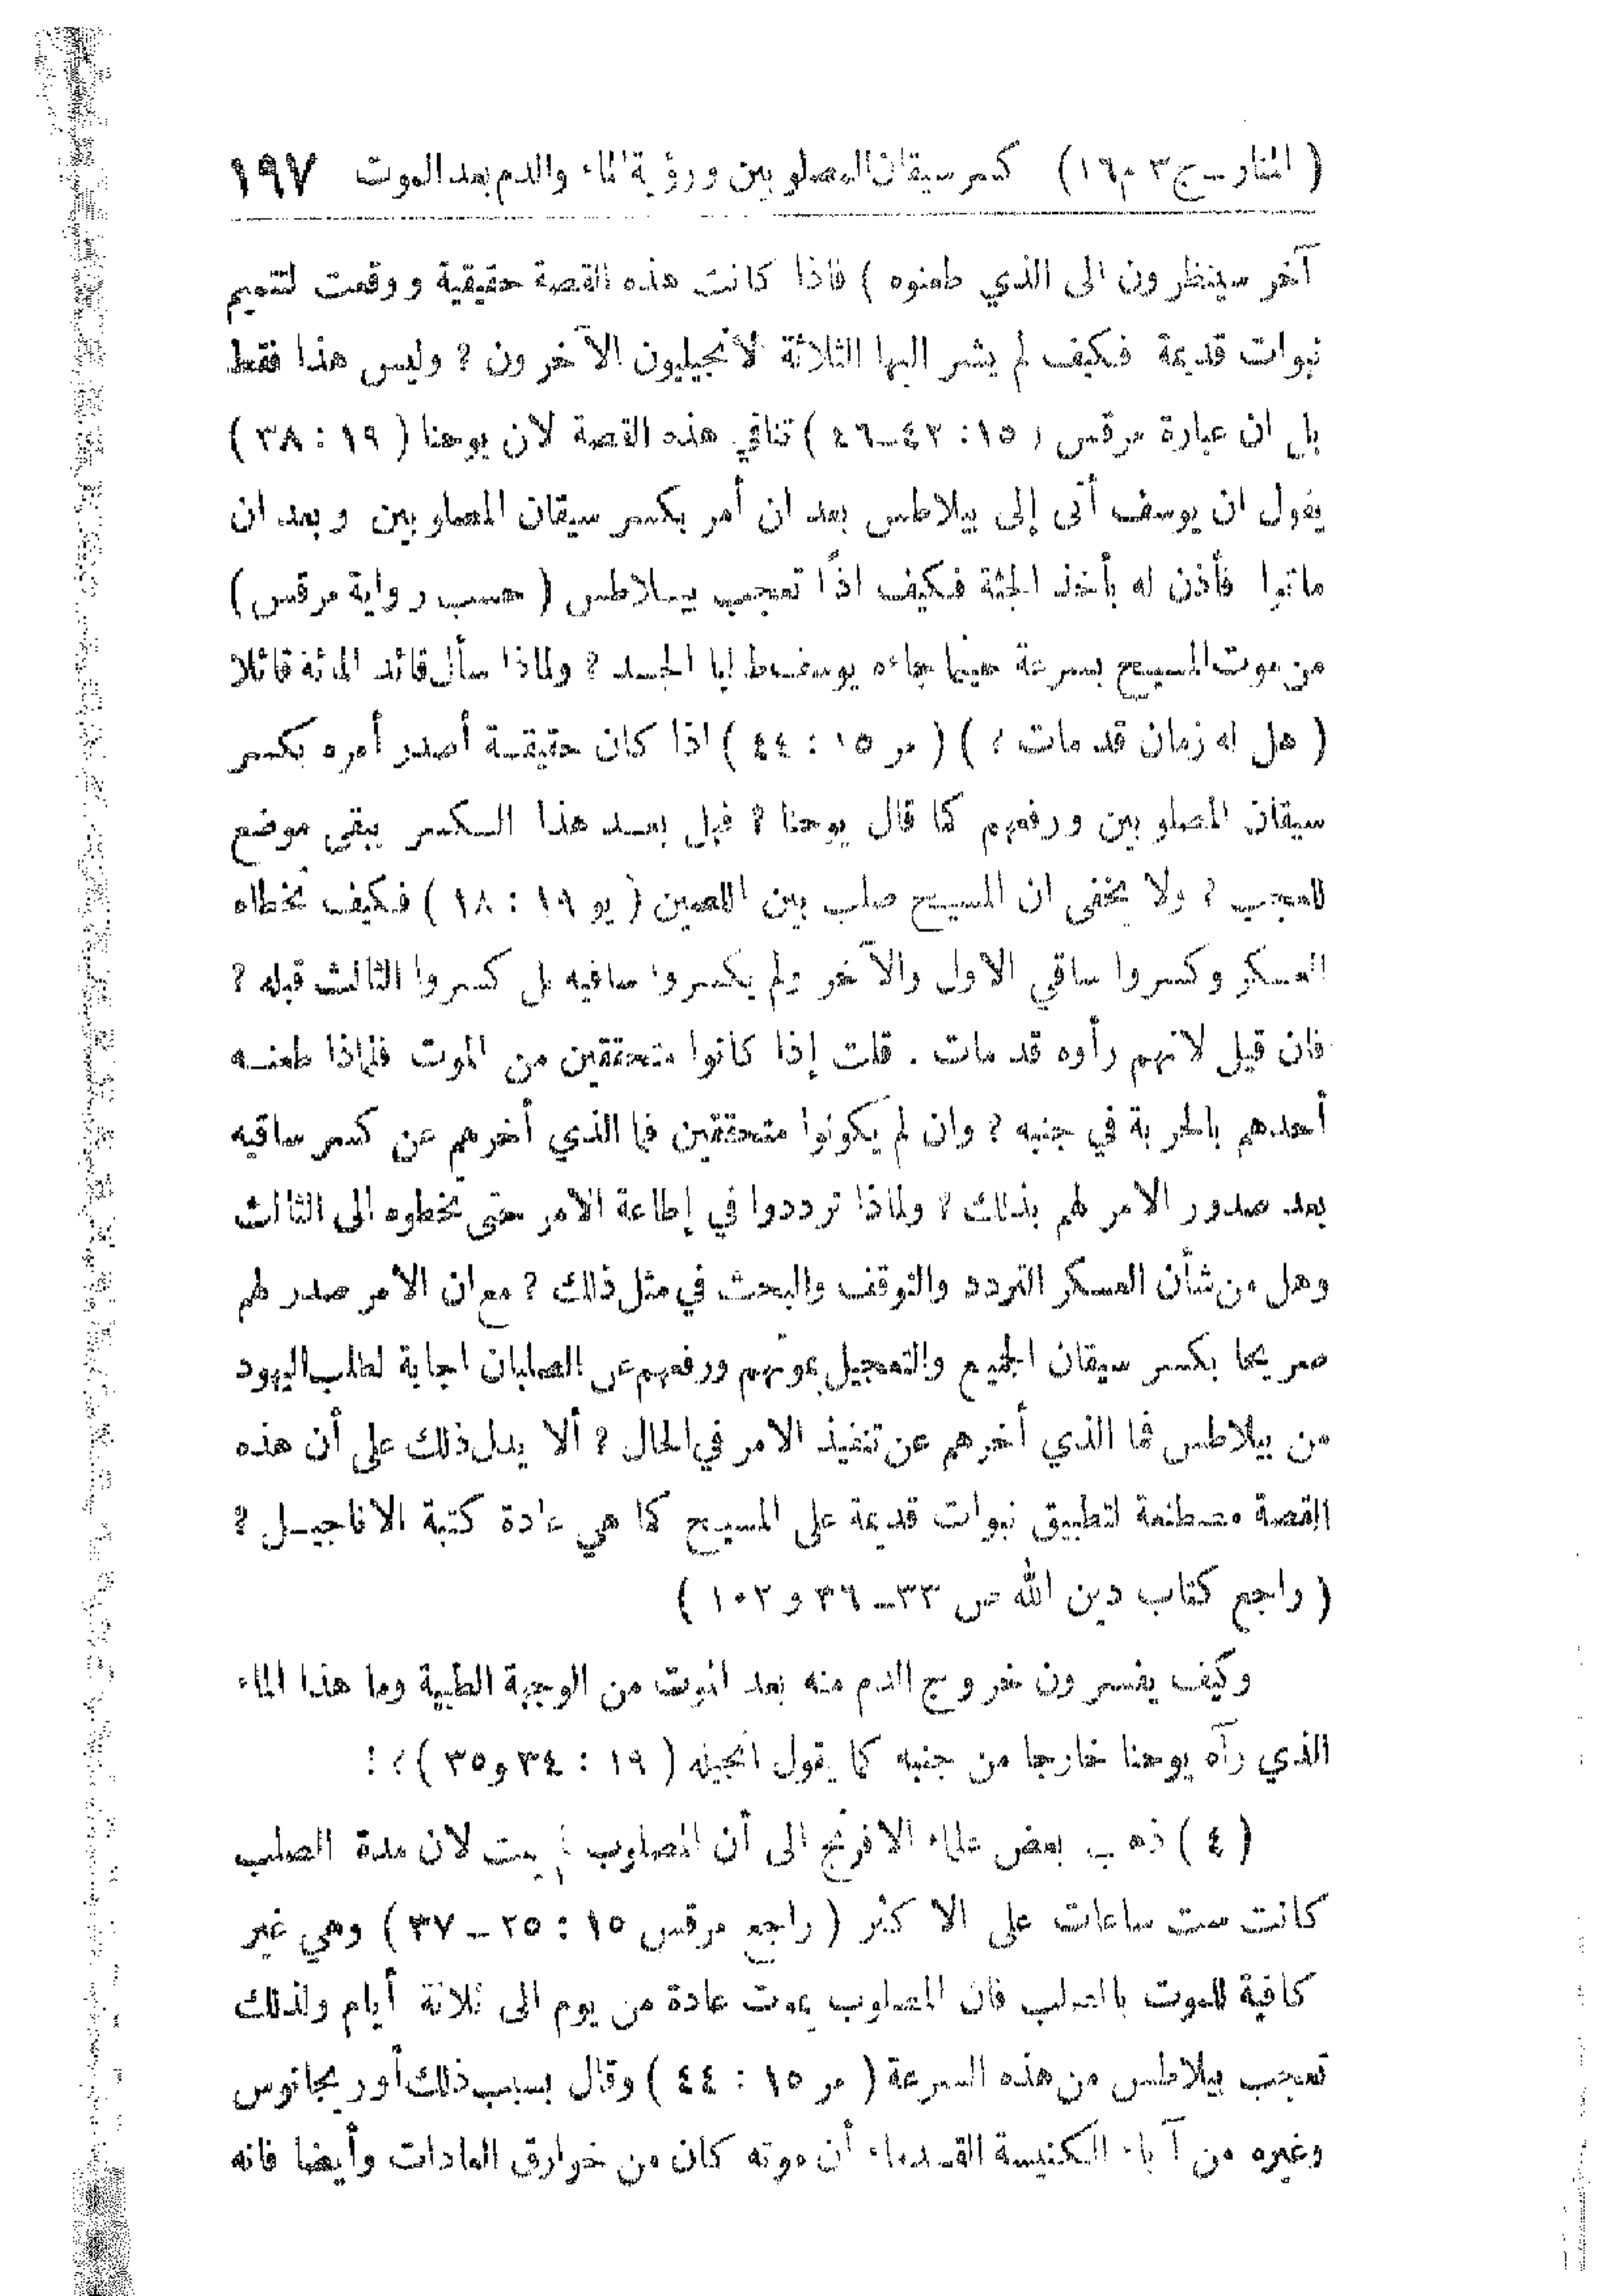 ( المنار ـ ج ٣ م ١٦ ) كسر سيقان المصلوبين ورؤية الماء والدم بعد الموت ١٩٧
آخر سينظرون الى الذي طعنوه ) فاذا كانت هذه القصة حقيقية ووقعت لتتميم
نبوات قديمة فكيف لم يشر اليها الثلاثة الانجيليون الآخرون ؟ وليس هذا فقط
بل ان عبارة مرقس ( ١٥ : ٤٢ـ٤٦ ) تنافي هذه القصة لان يوحنا ( ١٩ : ٣٨ )
يقول ان يوسف أتى إلى بيلاطس بعد ان أمر بكسر سيقان المصلوبين وبعد ان
ماتوا فأذن له بأخذ الجثة فكيف اذًا تعجب بيـلاطس ( حسب رواية مرقس )
من موت المسيح بسرعة حينما جاءه يوسف طالبا الجسد ؟ ولماذا سأل قائد المائة قائلا
( هل له زمان قد مات ؟ ) ( مر ١٥ : ٤٤ ) اذا كان حقيقـة أصدر أمره بكسر
سيقان المصلوبين ورفعهم كما قال يوحنا ؟ فهل بعـد هذا الـكسر يبقى موضع
للعجب ؟ ولا يخفى ان المسيح صلب بين اللصين ( يو ١٩ : ١٨ ) فكيف تخطاه
العسكر وكسروا ساقي الاول والآخر ولم يكسروا ساقيه بل كسروا الثالث قبله ؟
فان قيل لانهم رأوه قد مات . قلت إذا كانوا متحققين من الموت فلماذا طعنـه
أحدهم بالحربة في جنبه ؟ وان لم يكونوا متحققين فما الذي أخرهم عن كسر ساقيه
بعد صدور الامر لهم بذلك ؟ ولماذا ترددوا في إطاعة الامر حتى تخطوه الى الثالث
وهل من شأن العسكر التردد والتوقف والبحث في مثل ذلك ؟ مع ان الامر صدر لهم
صريحا بكسر سيقان الجميع والتعجيل بموتهم ورفعهم عن الصلبان اجابة لطلب اليهود
من بيلاطس فما الذي أخرهم عن تنفيذ الامر في الحال ؟ ألا يدل ذلك على أن هذه
القصة مصطنعة لتطبيق نبوات قديمة على المسيح كما هي عادة كتبة الاناجيـل ؟
( راجع كتاب دين الله ص ٣٣ـ٣٦ و ١٠٢ )
وكيف يفسرون خروج الدم منه بعد الموت من الوجهة الطبية وما هذا الماء
الذي رآه يوحنا خارجا من جنبه كما يقول انجيله ( ١٩ : ٣٤ و٣٥ ) ؟ !
( ٤ ) ذهب بعض علماء الافرنج الى أن المصلوب لم يمت لان مدة الصلب
كانت ست ساعات على الاكثر ( راجع مرقس ١٥ : ٢٥ ـ ٣٧ ) وهي غير
كافية للموت بالصلب فان المصلوب يموت عادة من يوم الى ثلاثة أيام ولذلك
تعجب بيلاطس من هذه السرعة ( مر ١٥ : ٤٤ ) وقال بسبب ذلك أوريجانوس
وغيره من آباء الـكنيسة القـدماء أن موته كان من خوارق العادات وأيضا فانه